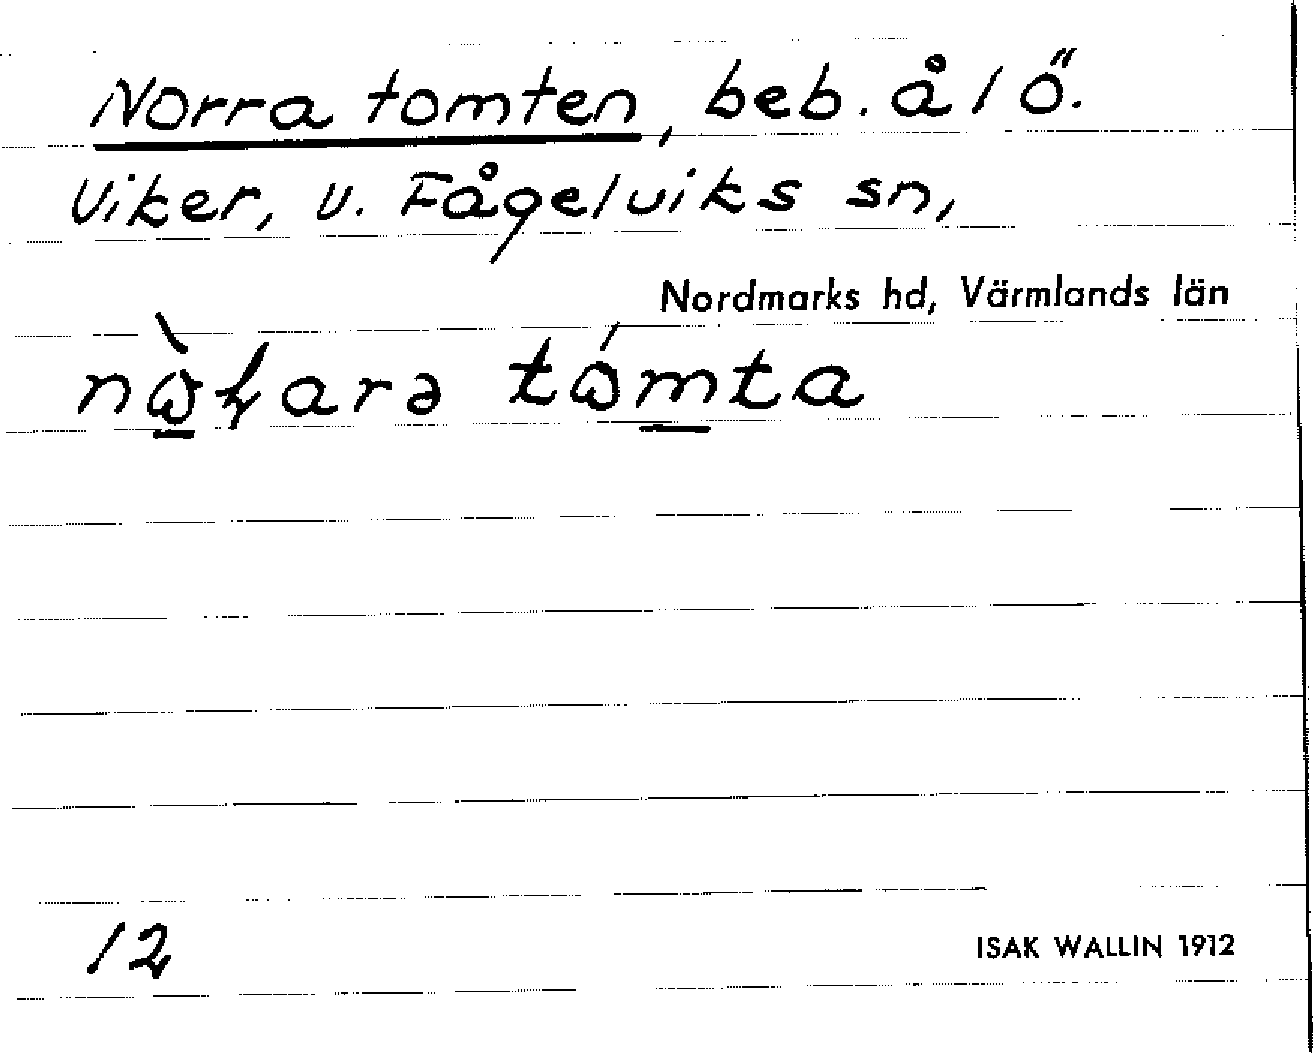 Norra tomten, beb. å 1 Ö.
Viker, V. Fågelviks sn,
Nordmarks hd, Värmlands län
tώmta
12
ISAK WALLIN 1912